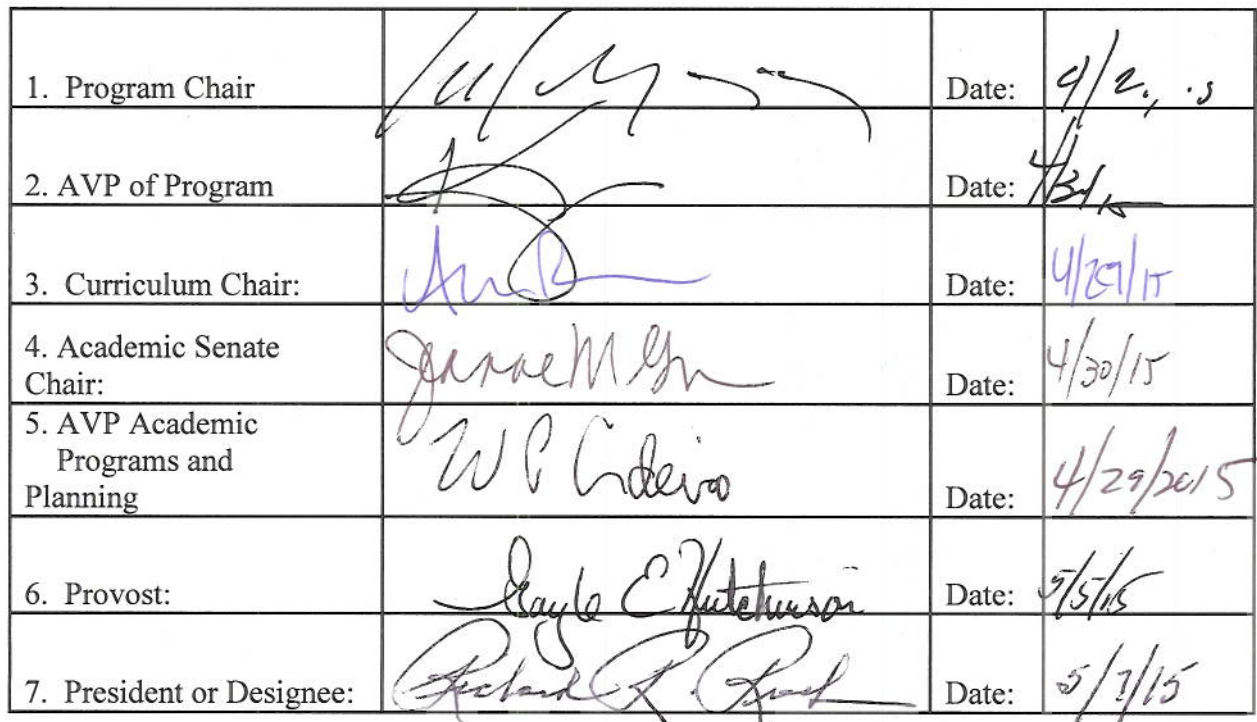 1. Program Chair Date:
2. AVP of Program Date:
3. Curriculum Chair: Date: 4/29/15
4. Academic Senate
Chair: Date: 4/30/15
5. AVP Academic
Programs and
Planning W P Cordeiro Date: 4/29/2015
6. Provost: Gayle E Hutchinson Date: 5/5/15
7. President or Designee: Richard R. Rush Date: